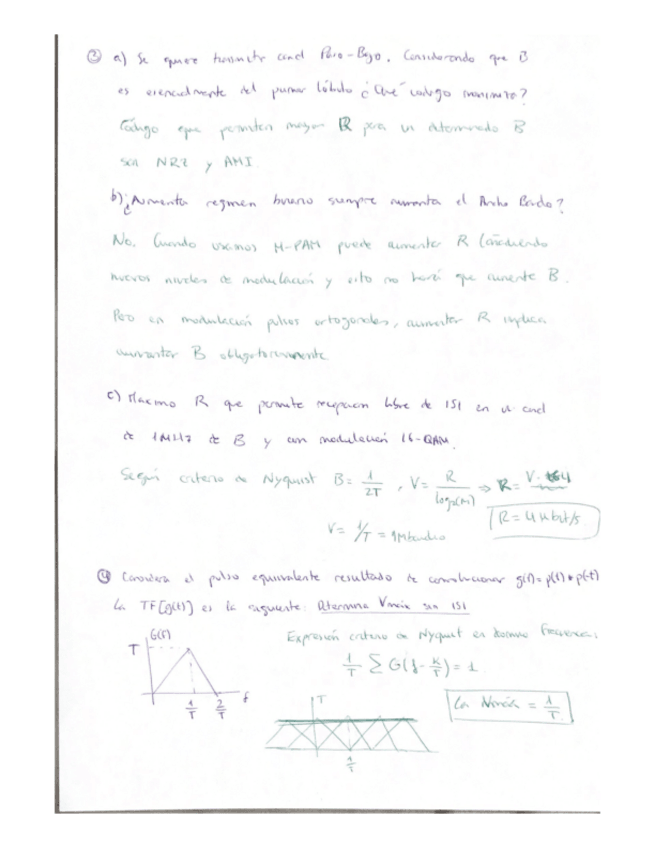 ③ a) Se quiere transmitir canal Paso-Bajo. Considerando que B
es esencialmente del primer lóbulo ¿Qué código maximiza?
Código que permiten mayor R para un determinado B
son NRZ y AMI
b) ¿Aumenta regimen binario siempre aumenta el Ancho Banda?
No. Cuando usamos M-PAM puede aumentar R (añadiendo
nuevos niveles de modulación y esto no hará que aumente B.
Pero en modulación pulsos ortogonales, aumentar R implica
aumentar B obligatoriamente
c) Máximo R que permite recepcion libre de ISI en un canal
de 1MHz de B y con modulación 16-QAM.
Según criterio de Nyquist B = 1/2T , V = R/log₂(M) ⇒ R = V·
V = 1/T = 1Mbaudio
R = 4Mbit/s
④ Considera el pulso equivalente resultado de convolucionar g(t) = p(t) * p(-t)
La TF[g(t)] es la siguiente: Determina Vmáx sin ISI
G(f)
T
f
1/T 2/T
Expresión criterio de Nyquist en dominio frecuencia:
1/T Σ G(f - k/T) = 1
T
1/T
La Vmáx = 1/T